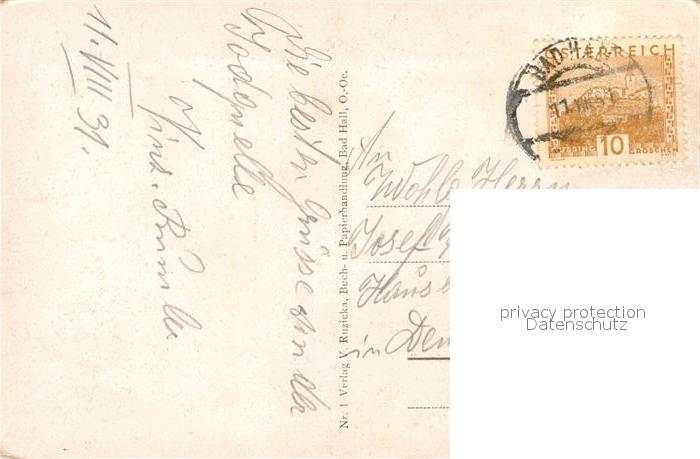 11.VIII 31.
Die besten Grüsse von der
Jodquelle
Nr. 1 Verlag V. Ruzicka, Buch- u. Papierhandlung, Bad Hall, O.-Oe.
An
Wohlg Herrn
Josef
in
BAD HALL
ÖSTERREICH
GÜSSING
10
GROSCHEN
privacy protection
Datenschutz